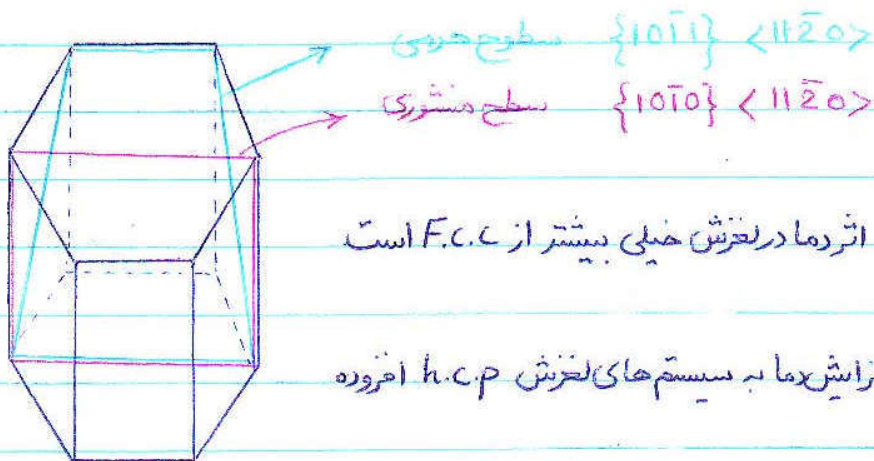 سطوح هرمی {101̄1} <112̄0>
سطح منشوری {101̄0} <112̄0>
اثر دما در لغزش خیلی بیشتر از F.C.C است
دما به سیستم های لغزش h.c.p افزوده